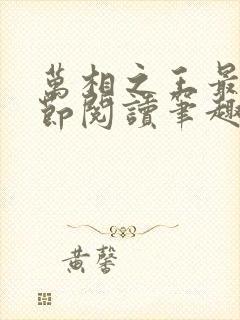 萬相之王最
節閱讀筆趣
黃馨